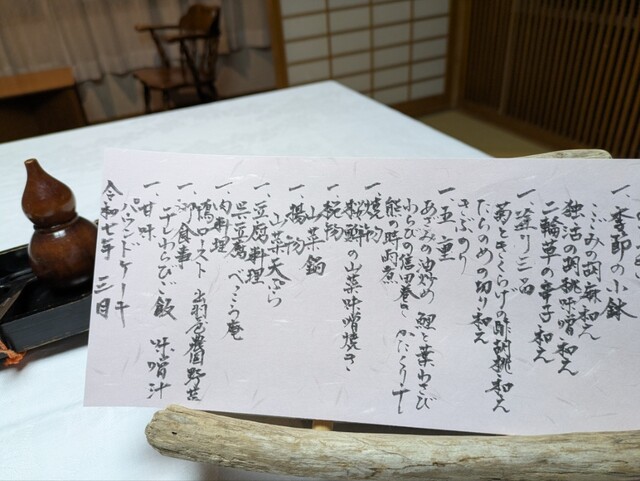 一、季節の小鉢
こごみの胡麻和え
独活の胡桃味噌和え
二輪草の辛子和え
一、塗り三品
菊ときくらげの酢胡桃和え
たらのめの切り和え
きぶのり
一、五、重
あざみの油炒め 鯉と葉わさび
わらびの信田巻き
熊の時雨煮
一、焼物
の山菜味噌焼き
一、椀物
山菜鍋
一、揚物
山菜天ぷら
一、豆腐料理
呉豆腐 べっこう庵
一、肉料理
鴨ロースト 出羽屋農園野菜
一、御食事
干しわらびご飯 味噌汁
一、甘味
パウンドケーキ
令和七年 三月